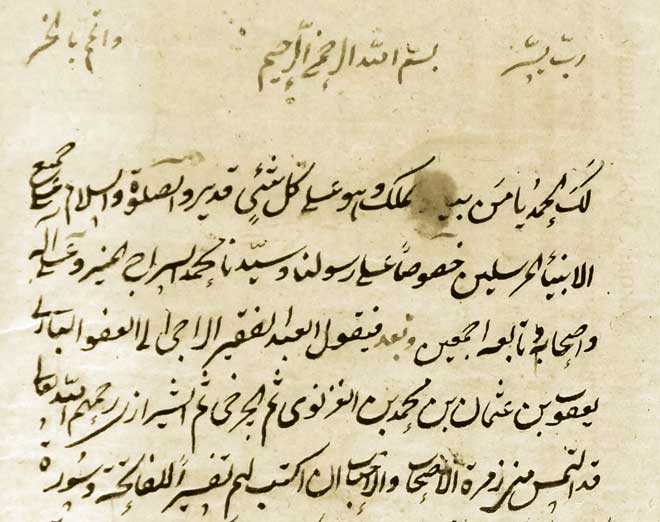 ربّ يسّر بسم الله الرحمن الرحيم وتمم بالخير
لَكَ الحمدُ يا مَن بيده الملك وهو على كل شئٍ قدير والصلوة والسلام على جميع
الانبيأ المرسلين خصوصاً على رسولنا وسيّدنا محمد السراج المنير وعلى آله
واصحابه و تابعه اجمعين وبعد فيقول العبد الفقير الراجى الى العفو البارى
يعقوب بن عثمان بن محمد بن الغزنوى ثم الجرخى ثم الشيرازى رحمهم الله تعالى
قد التمس منى زمرة الاصحاب والاحباب ان اكتب لهم تفسيراً للفاتحة وسورة